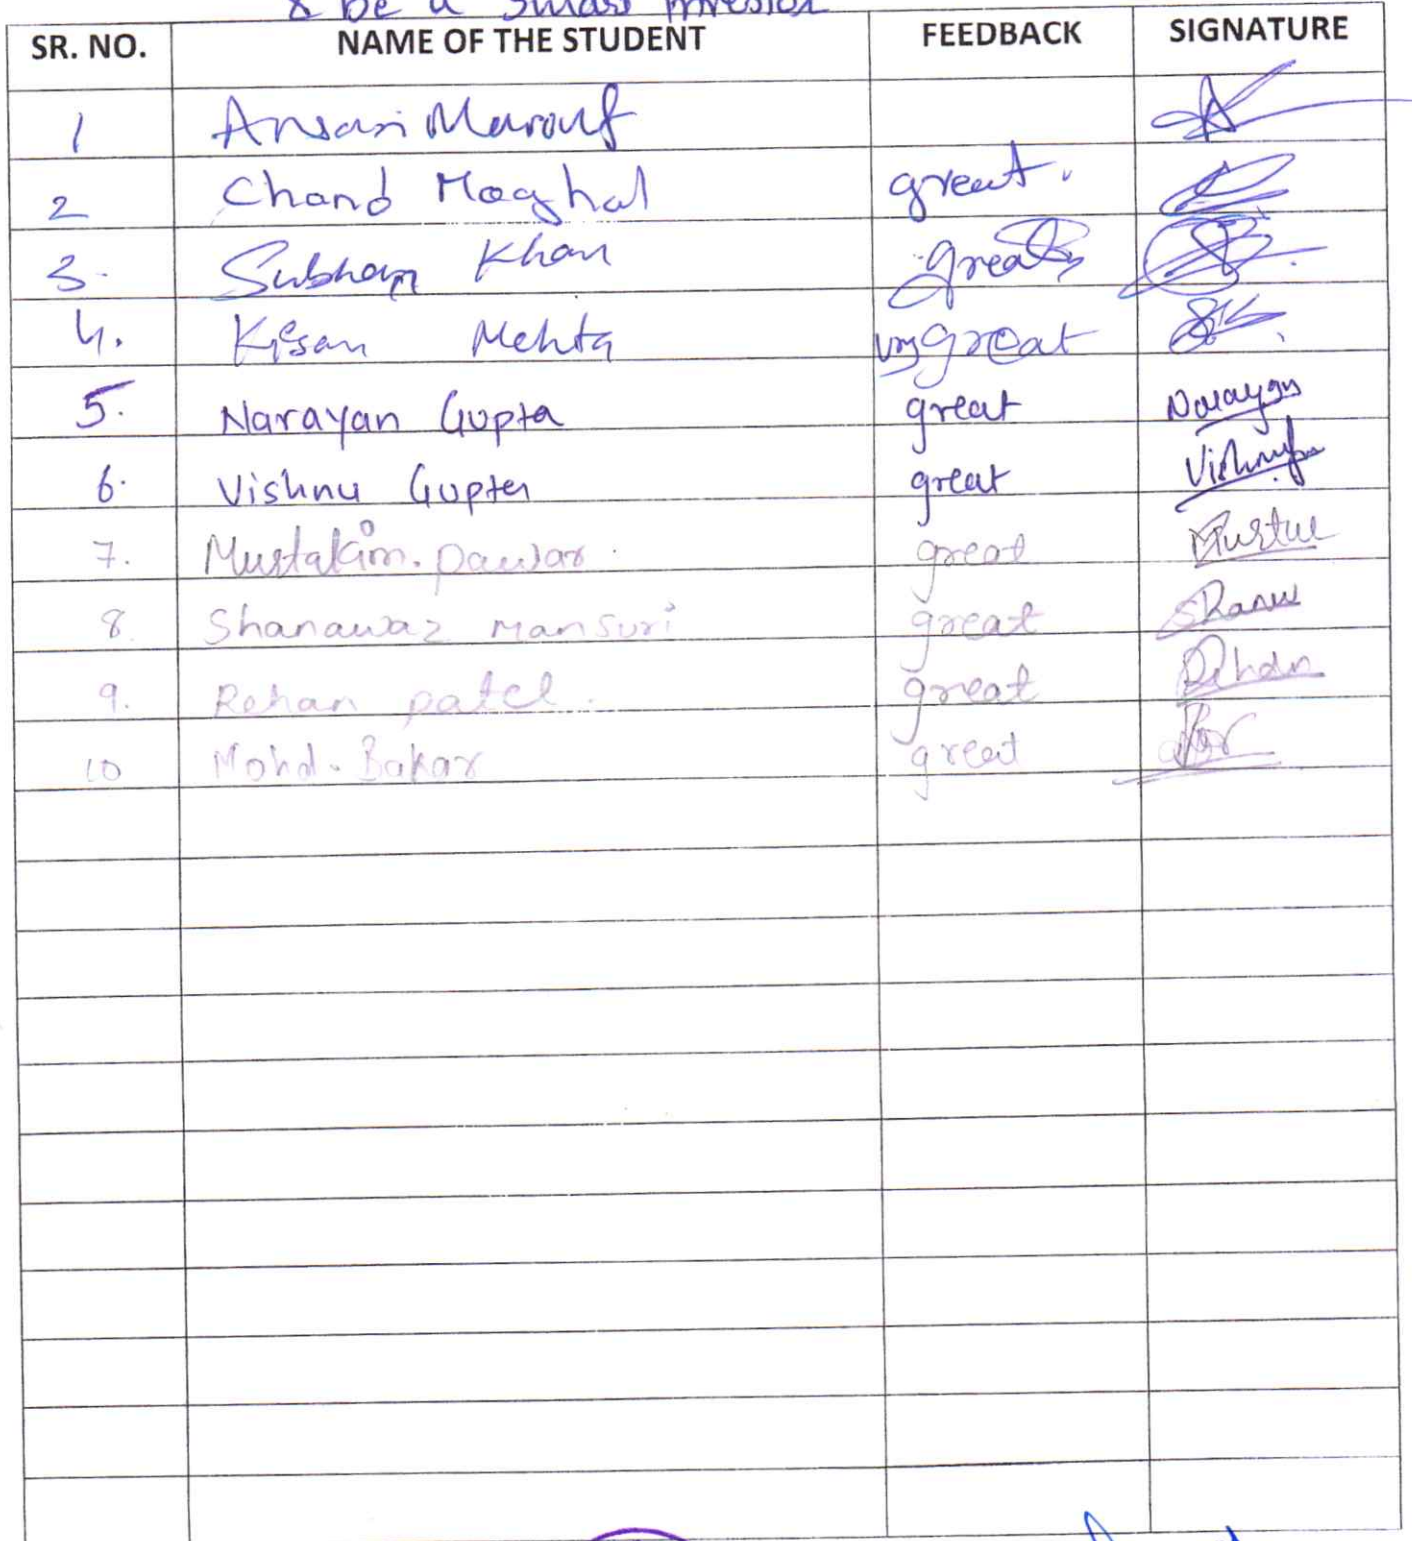 & be a smart investor
SR. NO. NAME OF THE STUDENT FEEDBACK SIGNATURE
1 Ansari Marouf
2 Chand Moghal great.
3. Subhan Khan great
4. Kisan Mehta very great
5. Narayan Gupta great Narayan
6. Vishnu Gupta great Vishnu
7. Mustakim. Pawar. great
8. Shanawaz Mansuri great
9. Rehan patel. great Rehan
10 Mohd. Bakar great